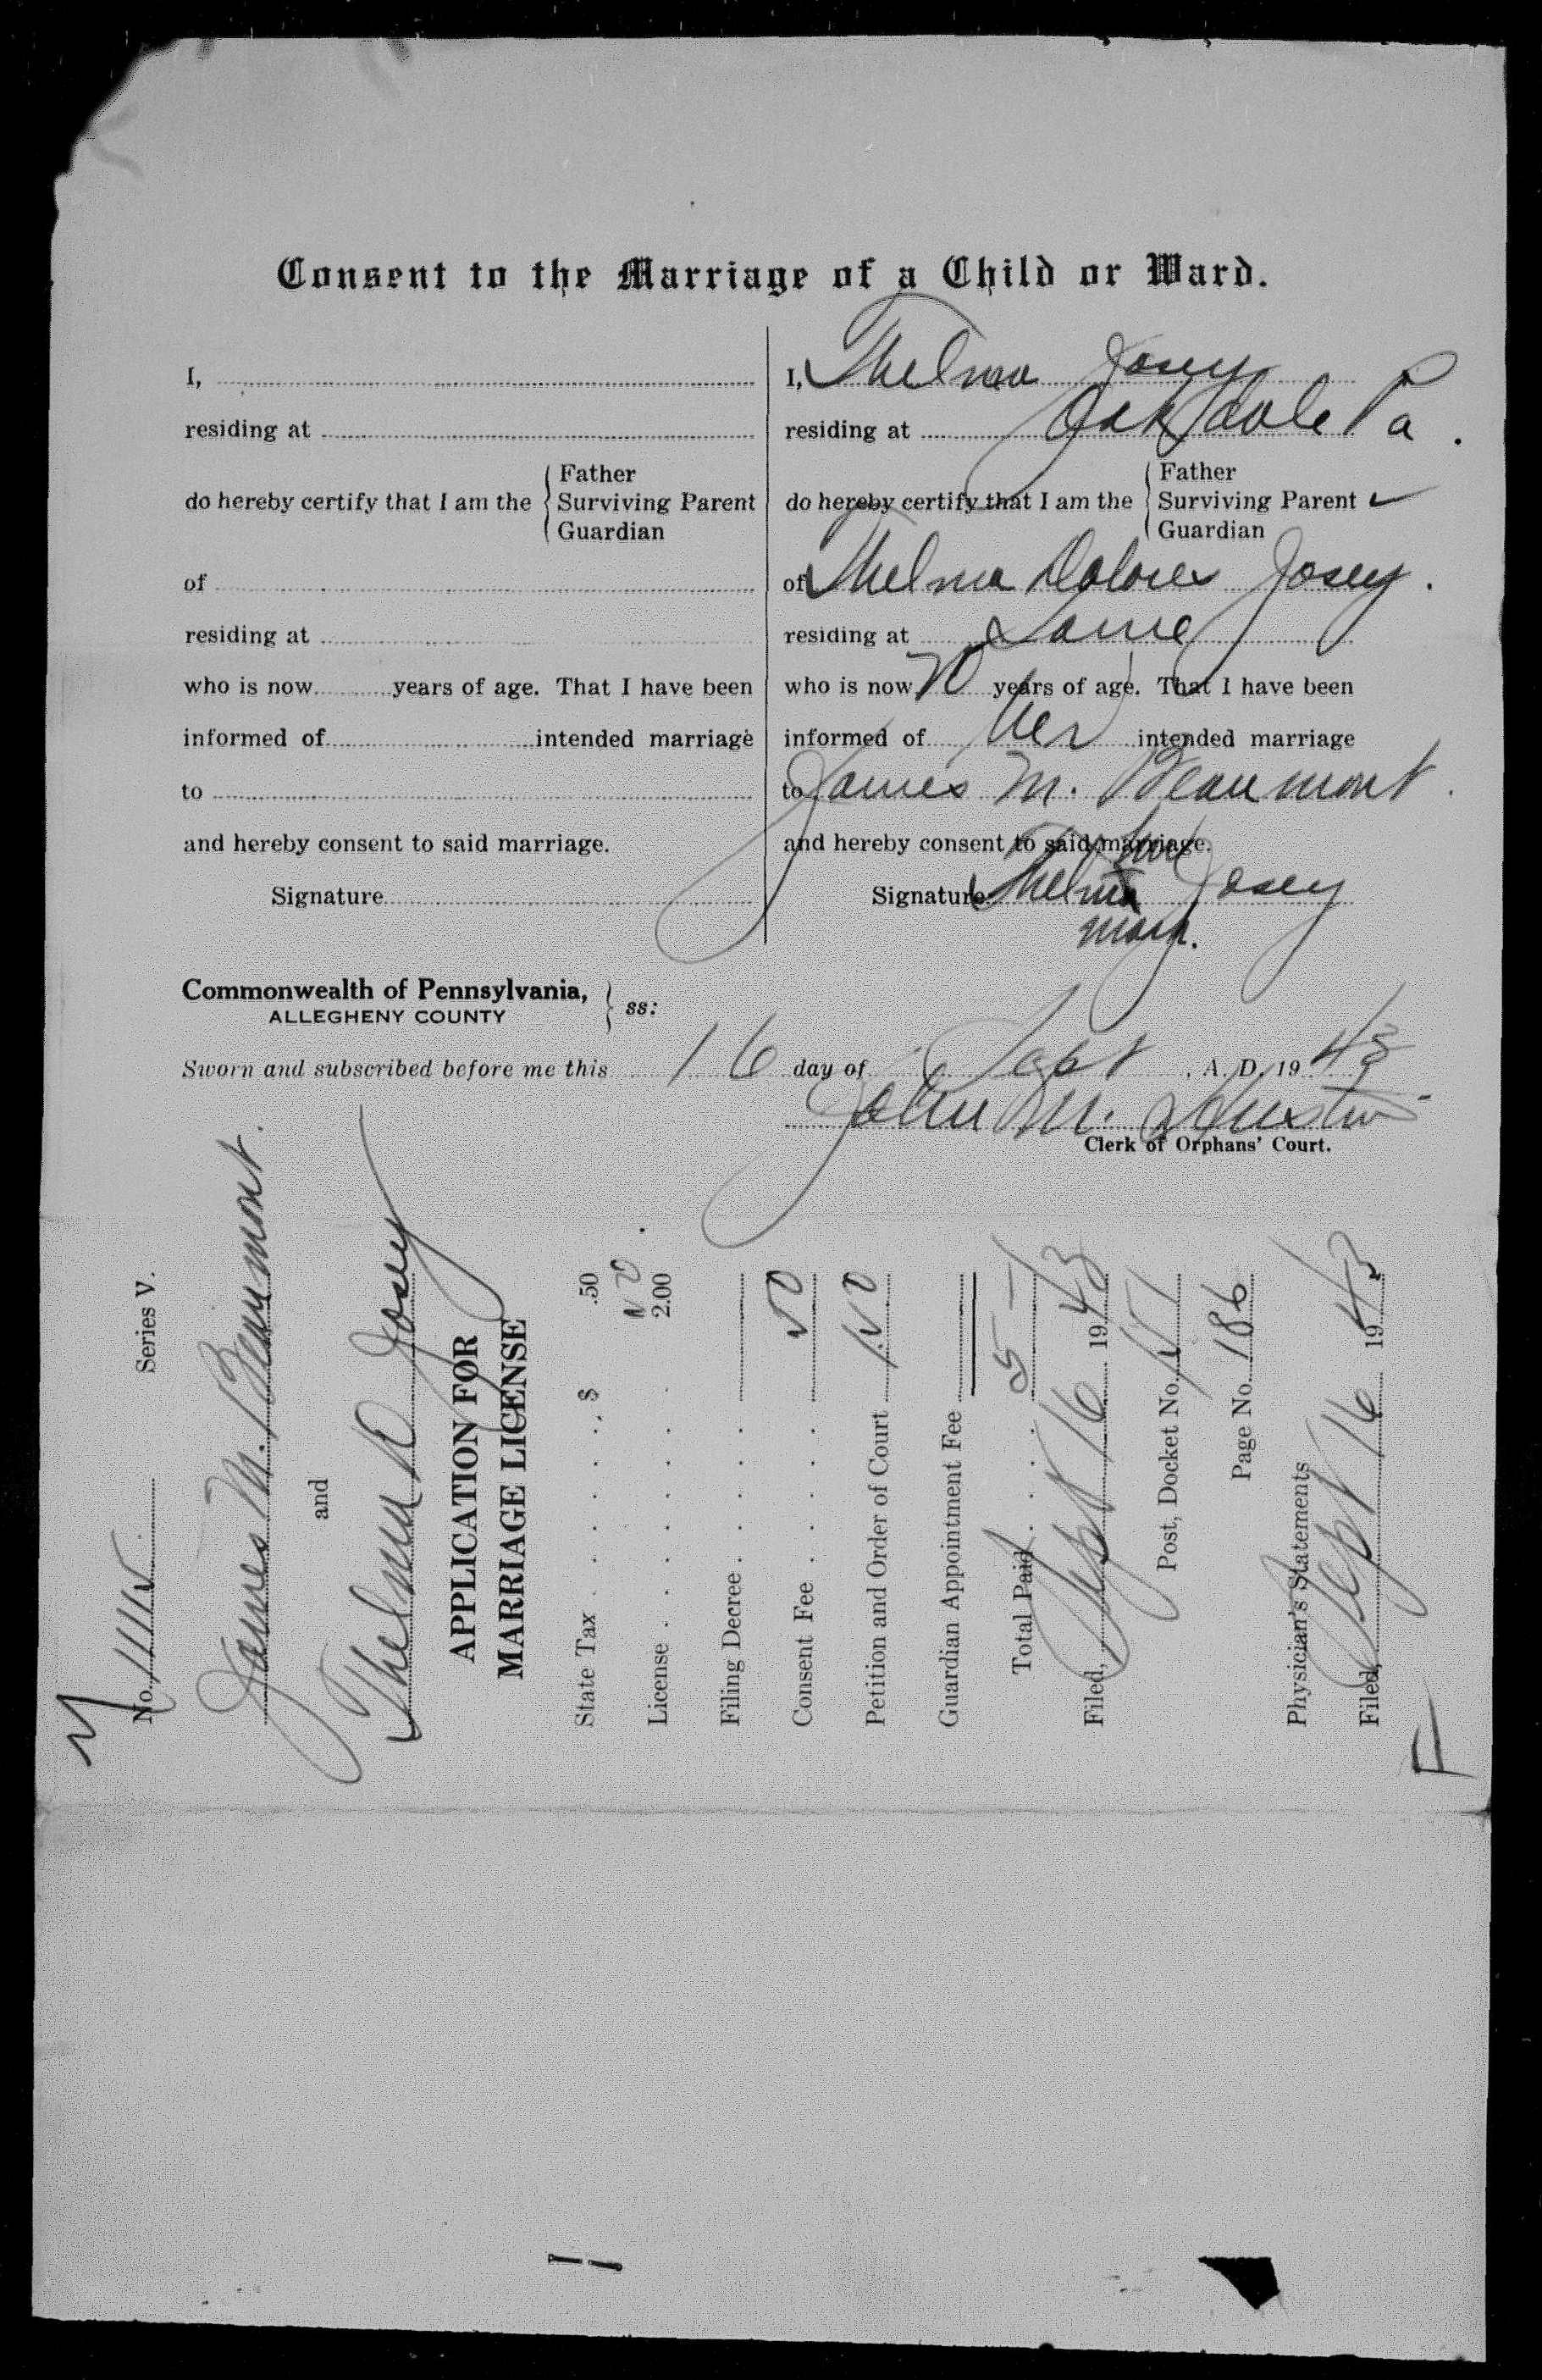 Consent to the Marriage of a Child or Ward.
I,
residing at
do hereby certify that I am the { Father
Surviving Parent
Guardian
of
residing at
who is now years of age. That I have been
informed of intended marriage
to
and hereby consent to said marriage.
Signature
I, Thelma Josey
residing at Oakdale Pa.
do hereby certify that I am the { Father
Surviving Parent ✓
Guardian
of Thelma Dolores Josey.
residing at Same
who is now 20 years of age. That I have been
informed of her intended marriage
to James M. Beaumont.
and hereby consent to said marriage.
her
Signature Thelma X Josey
mark.
Commonwealth of Pennsylvania,
ALLEGHENY COUNTY } ss:
Sworn and subscribed before me this 16 day of Sept , A. D. 19 43
John M.
Clerk of Orphans' Court.
No. Series V.
James M. Beaumont.
and
Thelma D Josey
APPLICATION FOR
MARRIAGE LICENSE
State Tax . . . . . . $ .50
License . . . . . . 2.00
Filing Decree . . . .
Consent Fee . . . . 50
Petition and Order of Court 1.50
Guardian Appointment Fee
Total Paid . . . 5
Filed, Sept 16 1943
Post, Docket No.
Page No. 186
Physician's Statements
Filed, Sept 16 1943